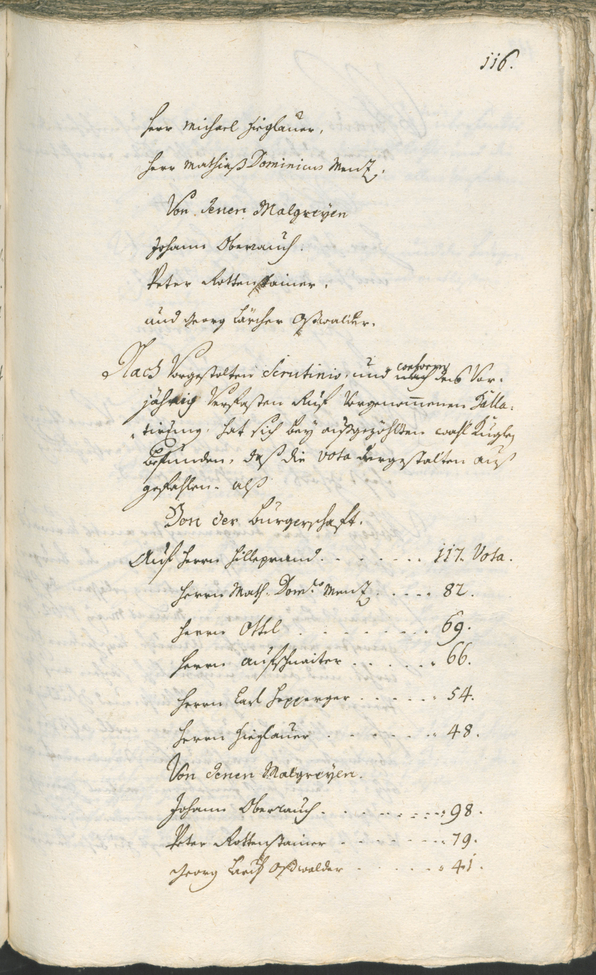 116.
Herr Michael Hieglauer.
Herr Mathias Dominicus Mentz.
Von denen Malgreyen
Johann Oberrauch.
Peter Rottenstainer.
und Georg Lärcher Oswalder.
Nach Vorgestolten Scrutinio, und conform des Vor-
jährig Verfasten Auf Vorgenommenen Balla-
tirung, hat sich bey außgezöhlten wahl Kuglen
befunden, daß die vota dergestalten auß
gefahlen. alß
Von der Burgerschaft.
Auf Herrn Hilleprand. 117. Vota.
Herrn Math. Dom. Mentz 82.
Herrn Ottel 69.
Herrn Aufschnaiter 66.
Herrn Carl Hepperger 54.
Herrn Hieglauer 48.
Von denen Malgreyen.
Johann Oberrauch. 98.
Peter Rottenstainer 79.
Georg Oswalder 41.